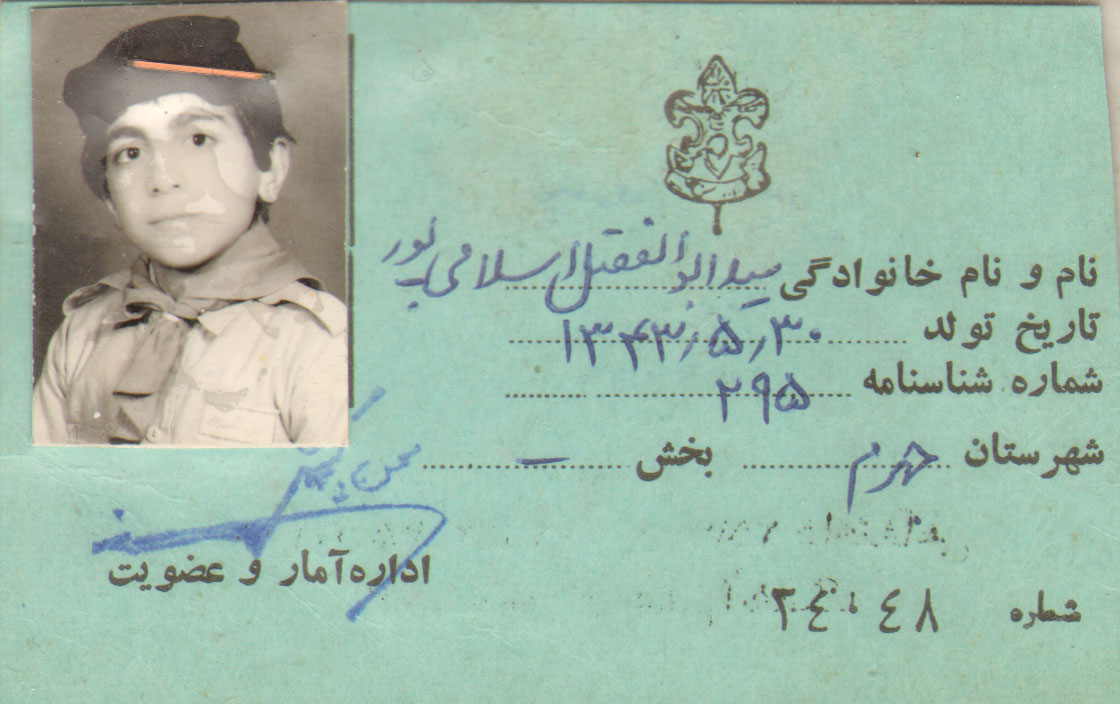 نام و نام خانوادگی سیدابوالفضل اسلامی پور
تاریخ تولد ۱۳۴۳٫۵٫۳۰
شماره شناسنامه ۲۹۵
شهرستان جهرم بخش –
اداره آمار و عضویت
شماره ۲٤۰٤۸